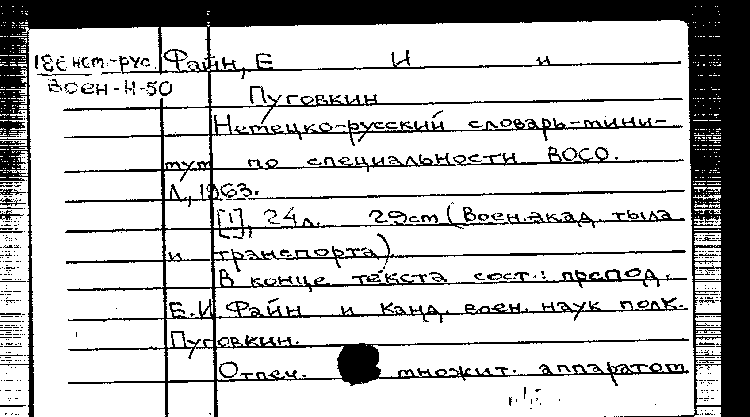 нем.-рус. Файн, Е И и
Воен-Н-50
Пуговкин
Немецко-русский словарь-мини-
мум по специальности ВОСО.
Л., 1963.
[1], 24л. 29см (Воен. акад. тыла
и транспорта)
В конце текста сост.: препод.
Е.И. Файн и канд. воен. наук полк.
Пуговкин.
Отпеч. множит. аппаратом